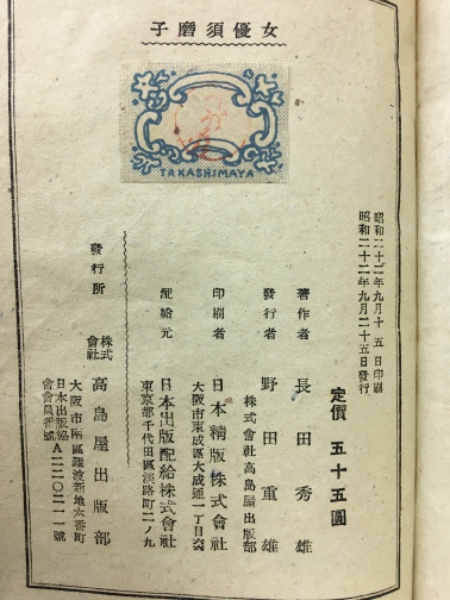 女優須磨子
TAKASHIMAYA
昭和二十二年九月十五日印刷
昭和二十二年九月二十五日發行
定價 五十五圓
著作者 長田秀雄
發行者 株式會社高島屋出版部
野田重雄
印刷者 大阪市東成區大成通一丁目
日本精版株式會社
配給元 日本出版配給株式會社
東京都千代田區淡路町二ノ九
發行所 株式會社 高島屋出版部
大阪市南區難波新地六番町
日本出版協會會員番號 A二二〇二一一號